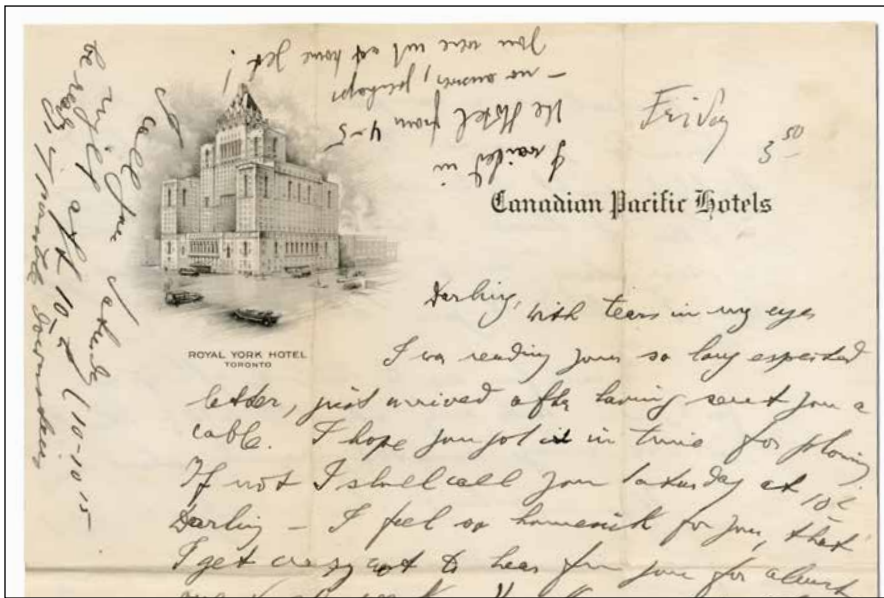 Friday
3 50
Canadian Pacific Hotels
ROYAL YORK HOTEL
TORONTO
Darling, with tears in my eyes
I was reading your so long expected
letter, just arrived after having sent you a
cable. I hope you got it in time for
If not I shall call you Saturday at 10
Darling – I feel so homesick for you, that
I get crazy not to hear from you for almost
I waited in
the Hotel from 4-5
– no answer, perhaps
you were not at home yet!
I call you
right aft 10 (10-1015
be ready